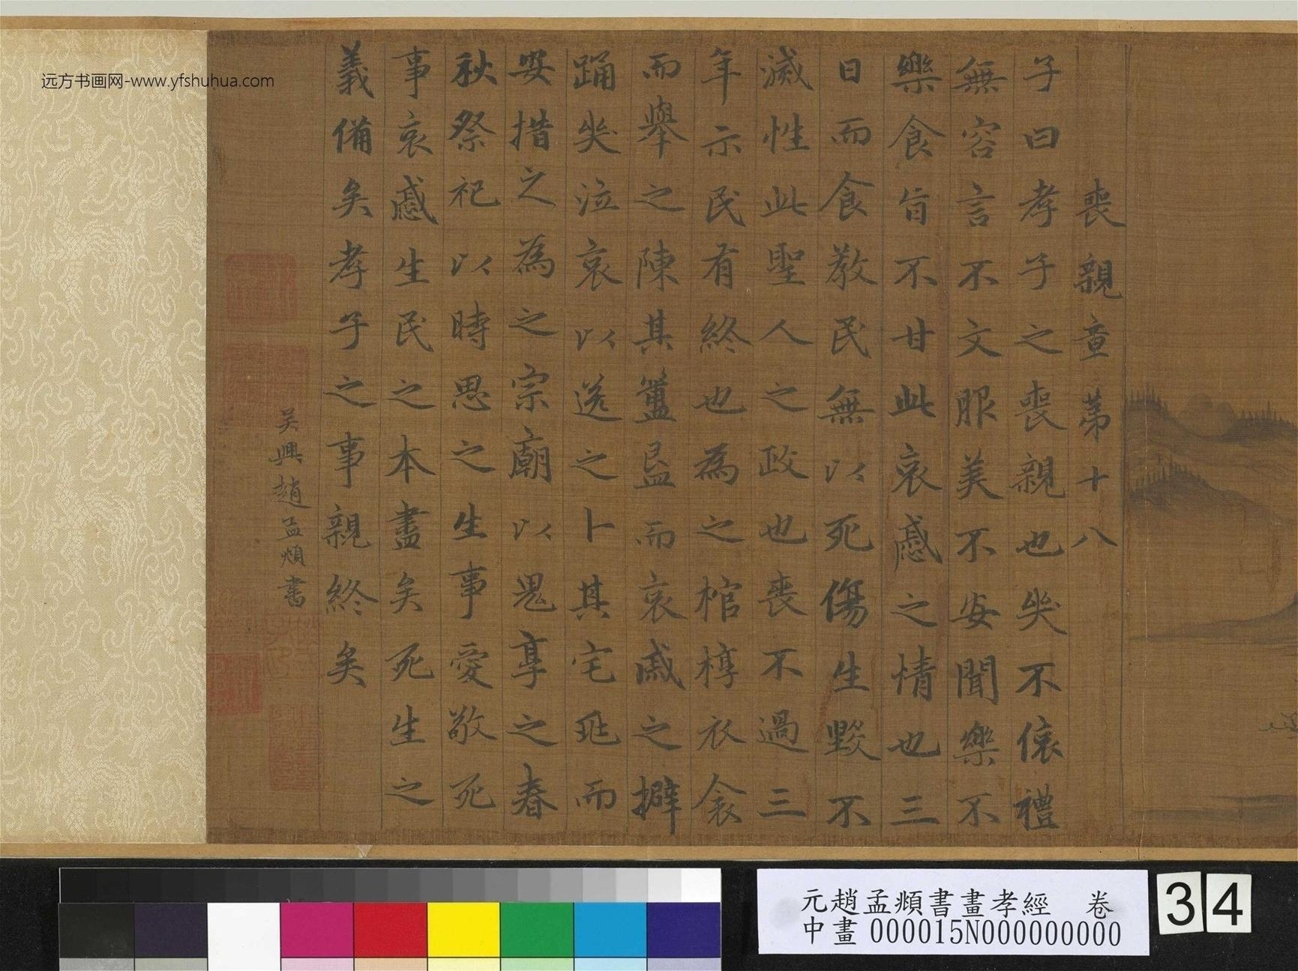 喪親章第十八
子曰孝子之喪親也哭不偯禮
無容言不文服美不安聞樂不
樂食旨不甘此哀慼之情也三
日而食教民無以死傷生毀不
滅性此聖人之政也喪不過三
年示民有終也為之棺椁衣衾
而舉之陳其簠簋而哀慼之擗
踊哭泣哀以送之卜其宅兆而
安措之為之宗廟以鬼享之春
秋祭祀以時思之生事愛敬死
事哀慼生民之本盡矣死生之
義備矣孝子之事親終矣
吳興趙孟頫書
远方书画网-www.yfshuhua.com
元趙孟頫書畫孝經 卷
中畫 000015N000000000
34